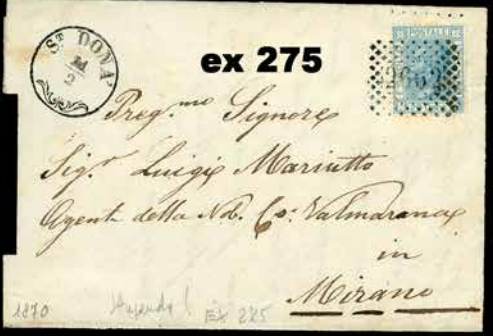 St DONA'
21
2
ex 275
POSTALE
Preg.mo Signore
Sig.r Luigi Mariutto
Agente della N.D. Co: Valmarana
in
Mirano
1870
Ex 225